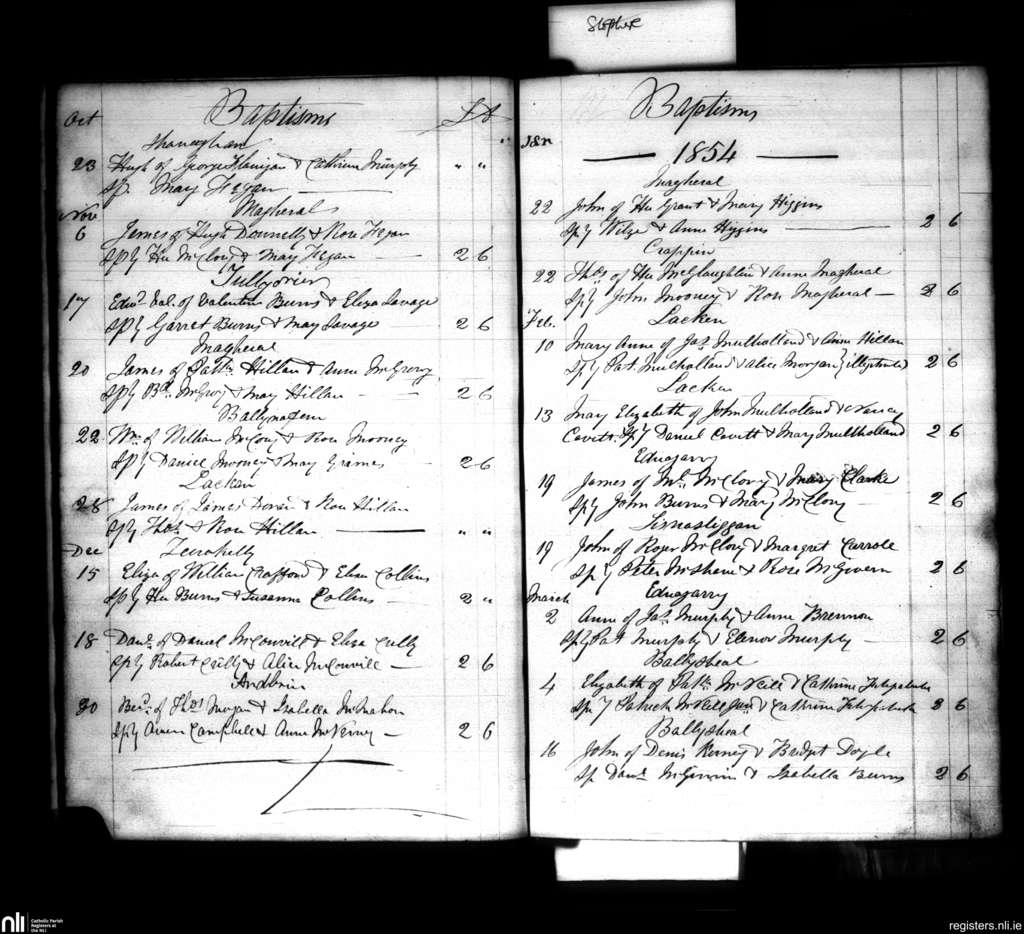 Stephe
Oct
Baptisms
£ s
Shanaghan
23 Hugh of George Flanigan & Cathrine Murphy " "
Sp. May Fegan
Magheral
Novr
6 James of Hugh Donnelly & Rose Fegan
Sps Hu McClory & May Fegan 2 6
Tullyorier
17 Edwd Val. of Valentine Burns & Eliza Savage
Sps Garret Burns & May Savage 2 6
Magheral
20 James of Patk Hillan & Anne McGrory
Sps Bd McGrory & May Hillan 2 6
22 Wm of William McCony & Rose Mooney
Sps Daniel Mooney & May Grames 2 6
Lacken
28 James of James Doran & Rose Hillan
Sps Thos & Rose Hillan " "
Dec
15 Eliza of William & Elisa Collins
Sps Hu Burns & Susanna Collins 2 "
18 Danl of Daniel McConvill & Eliza Cully
Sps Robert Cully & Alice McConvill 2 6
30 of Thos Morgan & Isabella McMahon
Sps Campbell & Anne McKerney 2 6
Baptisms
Jan
1854
Magheral
22 John of Hu Grant & Mary Higgins
Sps & Anne Higgins 2 6
Crappin
22 Thos of Hu McGlaughlin & Anne Magheral
Sps John Mooney & Rose Magheral 2 6
Feb. Lacken
10 Mary Anne of Jas Mulholland & Anne Hillan
Sps Pat. Mulholland & Alice Morgan 2 6
Lacken
13 May Elizabeth of John Mulholland & Nancy
Cavitt. Sps Daniel Cavitt & Mary Mulholland 2 6
Ednagarry
19 James of McClory & Mary Clarke
Sps John Burns & Mary McClory 2 6
Lisnasliggan
19 John of Roger McClory & Margret Carrole
Sps Peter McShane & Rose McGivern 2 6
March Ednagarry
2 Anne of Jas Murphy & Anne Brennon
Sps Pat Murphy & Elenor Murphy 2 6
Ballysheal
4 Elizabeth of Patk McVeile & Cathrine Fitzpatrick
Sps Patrick McVeile Junr & Cathrine Fitzpatrick 2 6
Ballysheal
16 John of Denis Kerney & Bridget Doyle
Sp Danl McGivirin & Isabella Burns 2 6
nli
Catholic Parish
Registers at
the NLI
registers.nli.ie